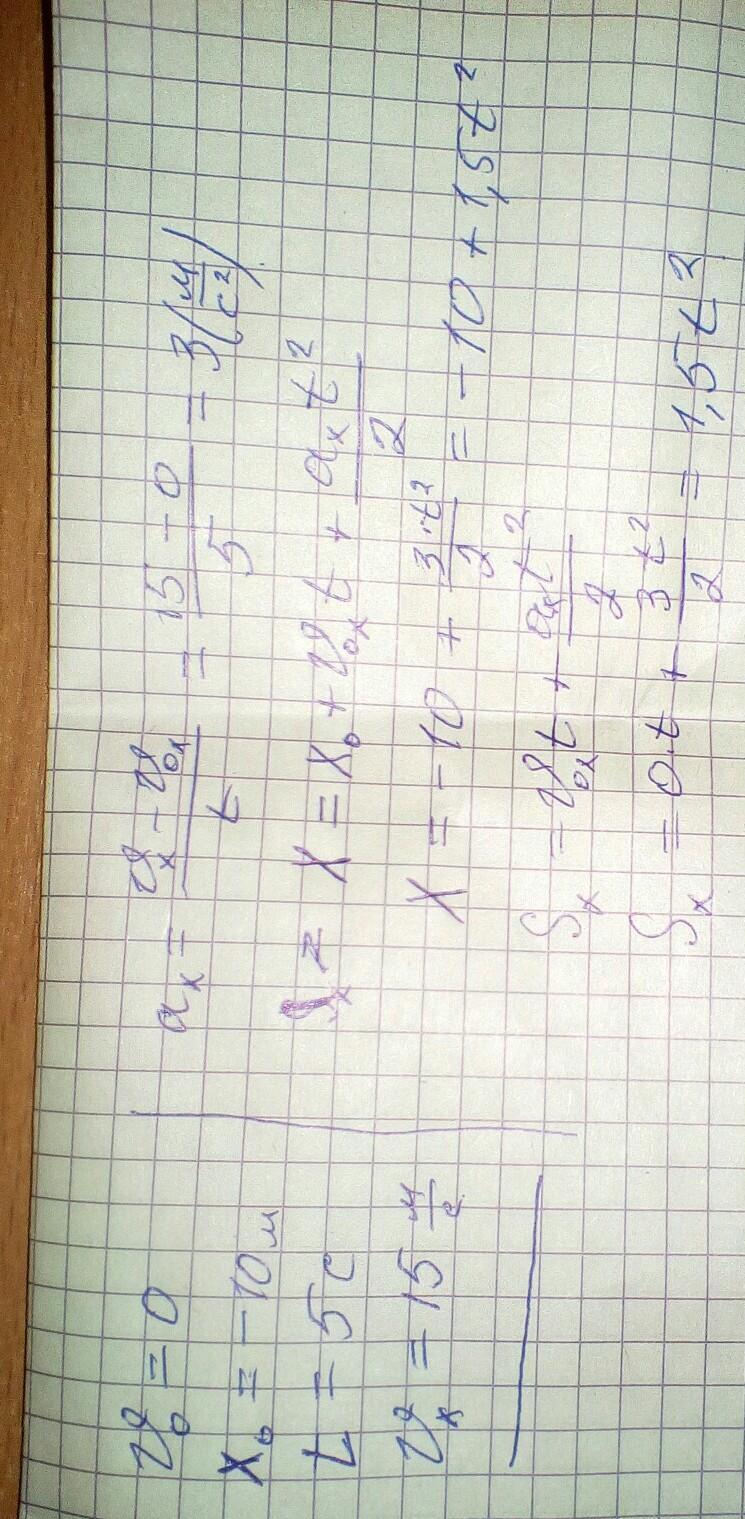 v₀ = 0
x₀ = -10 м
t = 5 с
vₓ = 15 м/с
aₓ = (vₓ - v₀ₓ)/t = (15 - 0)/5 = 3 (м/с²)
x = x₀ + v₀ₓt + aₓt²/2
x = -10 + 3·t²/2 = -10 + 1,5t²
Sₓ = v₀ₓt + aₓt²/2
Sₓ = 0·t + 3t²/2 = 1,5t²